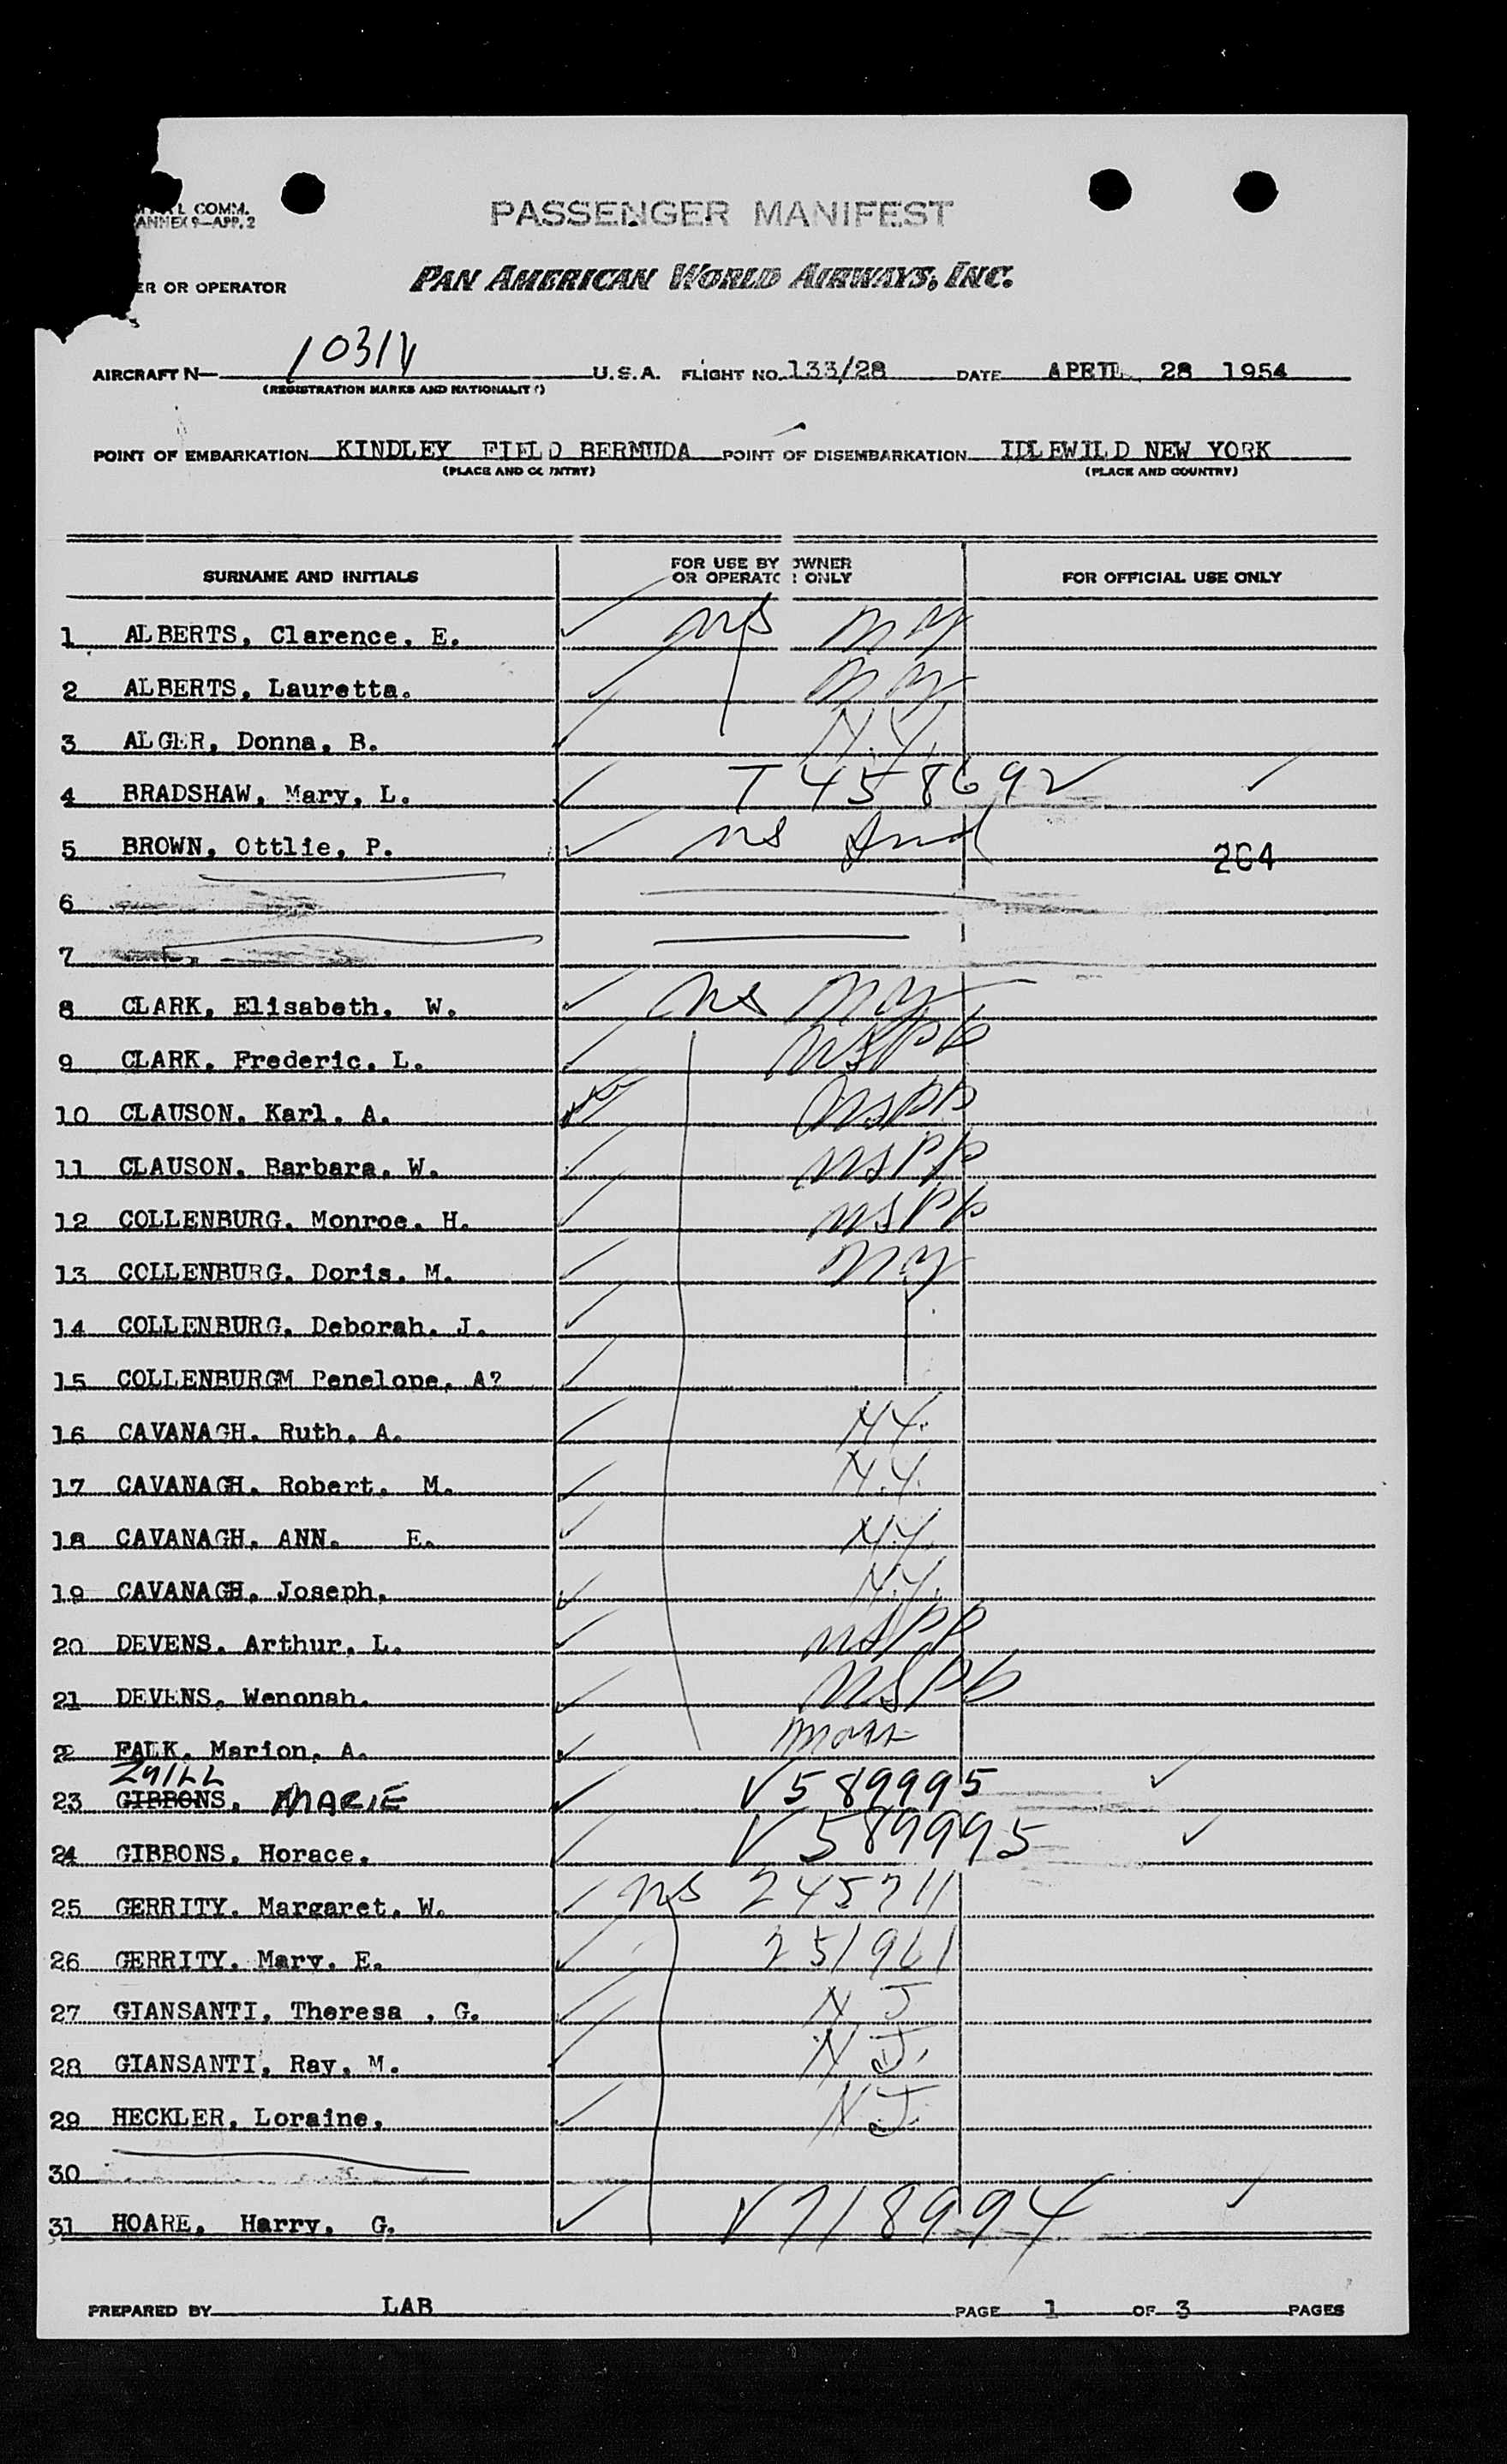 L COMM.
ANNEX 9—APP. 2
PASSENGER MANIFEST
ER OR OPERATOR
PAN AMERICAN WORLD AIRWAYS, INC.
AIRCRAFT N— 1031V U.S.A. FLIGHT NO. 133/28 DATE APRIL 28 1954
(REGISTRATION MARKS AND NATIONALITY)
POINT OF EMBARKATION KINDLEY FIELD BERMUDA POINT OF DISEMBARKATION IDLEWILD NEW YORK
(PLACE AND COUNTRY) (PLACE AND COUNTRY)
SURNAME AND INITIALS FOR USE BY OWNER OR OPERATOR ONLY FOR OFFICIAL USE ONLY
1 ALBERTS, Clarence, E. ns NY
2 ALBERTS, Lauretta. NY
3 ALGER, Donna, B. N.Y.
4 BRADSHAW, Mary, L. T 458692
5 BROWN, Ottlie, P. ns 264
6
7
8 CLARK, Elisabeth, W. ns NY
9 CLARK, Frederic, L. USPP
10 CLAUSON, Karl, A. USPP
11 CLAUSON, Barbara, W. USPP
12 COLLENBURG, Monroe, H. USPP
13 COLLENBURG, Doris, M. NY
14 COLLENBURG, Deborah, J.
15 COLLENBURGM Penelope, A?
16 CAVANAGH, Ruth, A. N.Y.
17 CAVANAGH, Robert, M. N.Y.
18 CAVANAGH, ANN. E. N.Y.
19 CAVANAGH, Joseph, N.Y.
20 DEVENS, Arthur, L. USPP
21 DEVENS, Wenonah. USPP
22 FALK, Marion, A. Mass
23 GIBBONS, MARIE V589995
24 GIBBONS, Horace, V589995
25 GERRITY, Margaret, W. ns 245711
26 GERRITY, Mary, E. 251961
27 GIANSANTI, Theresa , G. N J
28 GIANSANTI, Ray, M. N J.
29 HECKLER, Loraine, N.J.
30
31 HOARE, Harry, G. V718994
PREPARED BY LAB PAGE 1 OF 3 PAGES